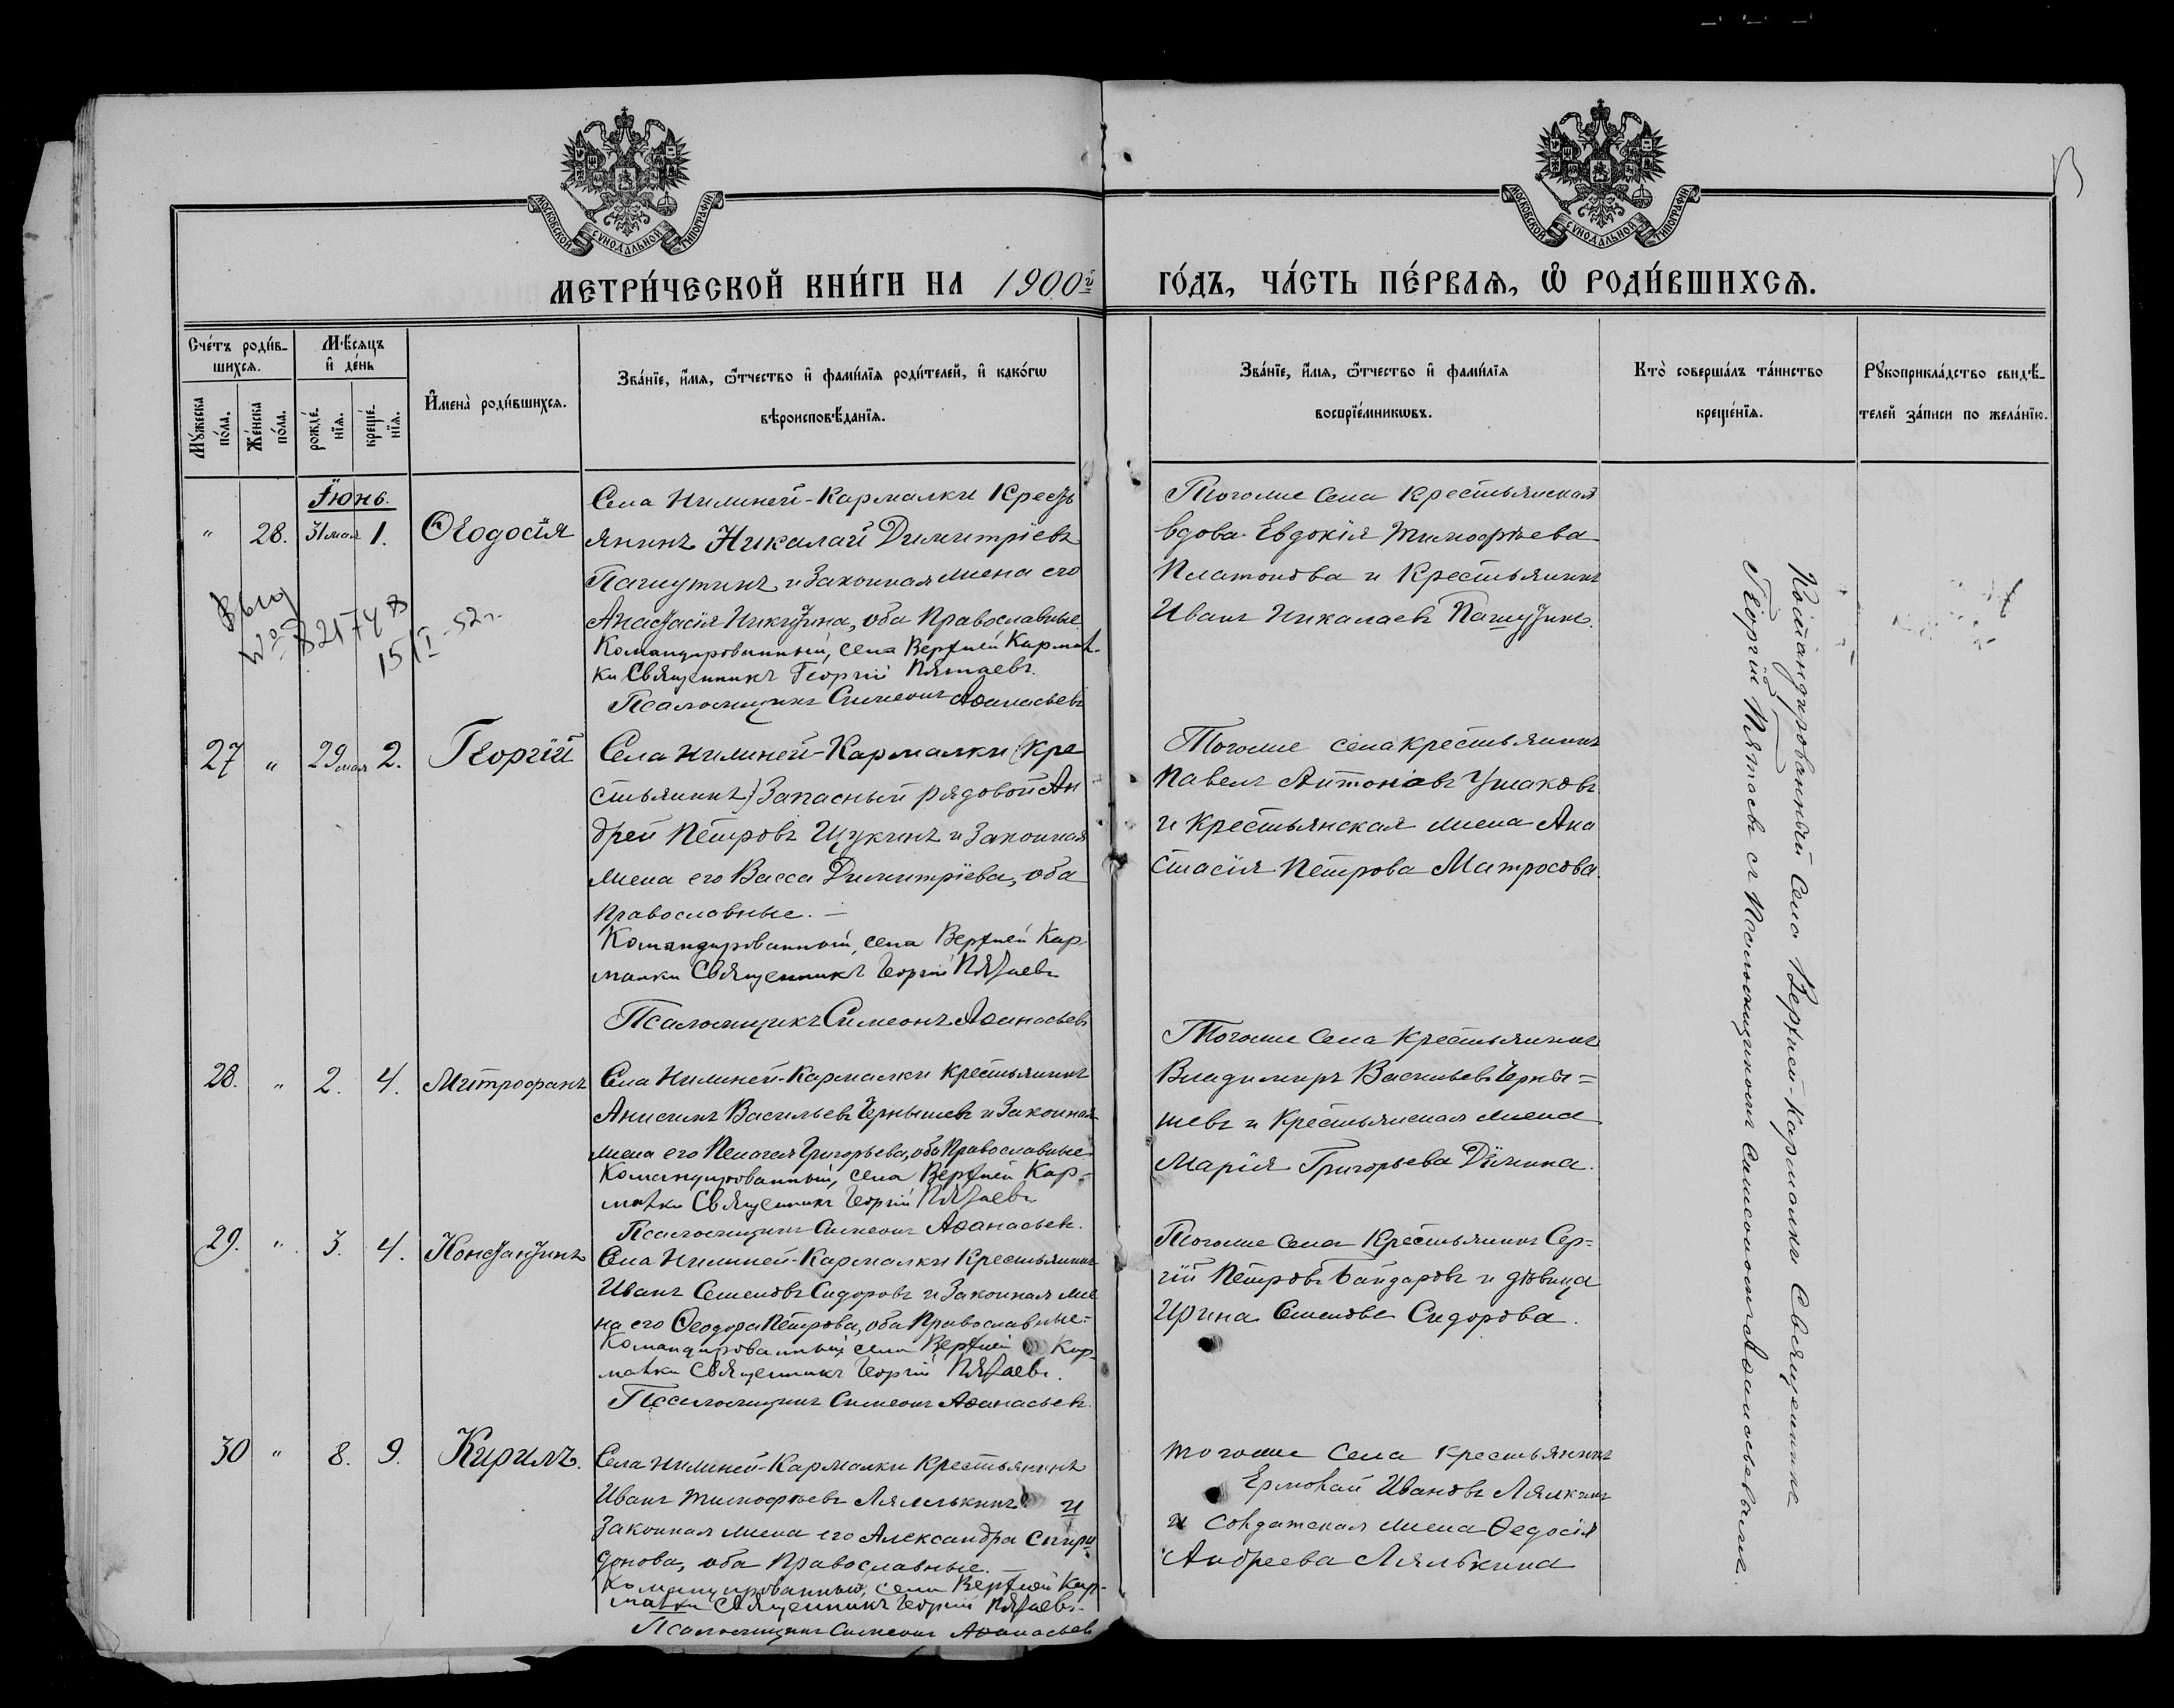 МОСКОВСКОЙ СУНОДАЛЬНОЙ ТИПОГРАФІИ
МОСКОВСКОЙ СУНОДАЛЬНОЙ ТИПОГРАФІИ
МЕТРИ́ЧЕСКОЙ КНИ́ГИ НА 1900й ГО́ДЪ, ЧА́СТЬ ПЕ́РВАѦ, Ѡ РОДИ́ВШИХСѦ.
Сче́тъ роди́в-
шихсѧ.
Мꙋ́жеска по́ла.
Же́нска по́ла.
Мѣ́сѧцъ и҆ де́нь
рожде́-нїѧ.
креще́-нїѧ.
И҆мена̀ роди́вшихсѧ.
Зва́нїе, и҆́мѧ, ѻ҆́тчество и҆ фами́лїѧ роди́телей, и҆ како́гѡ
вѣроисповѣ́данїѧ.
Зва́нїе, и҆́мѧ, ѻ҆́тчество и҆ фами́лїѧ
воспрїе́мникѡвъ.
Кто̀ соверша́лъ та́инство
креще́нїѧ.
Рꙋкоприкла́дство свидѣ́-
телей за́писи по жела́нїю.
Іюнь.
" 28. 31 мая 1. Ѳеодосія
Села Нилиней-Кармалки Кресть
янинъ Николай Димитріевъ
Пашутинъ и Законная жена его
Анастасія Никитина, оба Православные
Командированный, села Верхней Кармал-
ки Священникъ Георгій Пятаевъ.
Псаломщикъ Симеонъ Аѳанасьевъ
Тогоже Села Крестьянская
вдова Евдокія Тимофѣева
Платонова и Крестьянинъ
Иванъ Николаевъ Пашутинъ.
Выд
15/I-52 г.
27 " 29 мая 2. Георгій
Села Нилиней-Кармалки (Кре
стьянинъ) Запасный рядовой Ан
дрей Петровъ Щукинъ и Законная
жена его Васса Димитріева, оба
Православные. —
Командированный, села Верхней Кар
малки Священникъ Георгій Пятаевъ
Псаломщикъ Симеонъ Аѳанасьевъ
Тогоже села крестьянинъ
Павелъ Антоновъ Ушаковъ
и Крестьянская жена Ана
стасія Петрова Матросова.
28. " 2. 4. Митрофанъ
Села Нилиней-Кармалки Крестьянинъ
Анисимъ Васильевъ Чернышевъ и Законная
жена его Пелагея Григорьева, оба Православные
Командированный, села Верхней Кар-
малки Священникъ Георгій Пятаевъ
Псаломщикъ Симеонъ Аѳанасьевъ.
Тогоже Села Крестьянинъ
Владимиръ Васильевъ Черны=
шевъ и Крестьянская жена
Марія Григорьева Дёмина.
29. " 3. 4. Константинъ
Села Нилиней-Кармалки Крестьянинъ
Иванъ Семеновъ Сидоровъ и Законная же
на его Ѳеодора Петрова, оба Православные=
Командированный села Верхней Кар-
малки Священникъ Георгій Пятаевъ.
Псаломщикъ Симеонъ Аѳанасьевъ.
Тогоже Села Крестьянинъ Сер-
гій Петровъ Байдаровъ и дѣвица
Ирина Семенова Сидорова.
30 " 8. 9. Кирилъ.
Села Нилиней-Кармалки Крестьянинъ
Иванъ Тимофѣевъ Лялькинъ и
Законная жена его Александра Спири
донова, оба Православные. —
Командированный, села Верхней Кар-
малки Священникъ Георгій Пятаевъ.
Псаломщикъ Симеонъ Аѳанасьевъ
тогоже Села Крестьянинъ
Ермолай Ивановъ Лялкинъ
и Солдатская жена Ѳедосія
Андреева Лялькина
Командированный Села Верхней-Кармалки Священникъ
Георгій Пятаевъ съ Псаломщикомъ Симеономъ Аѳанасьевымъ.